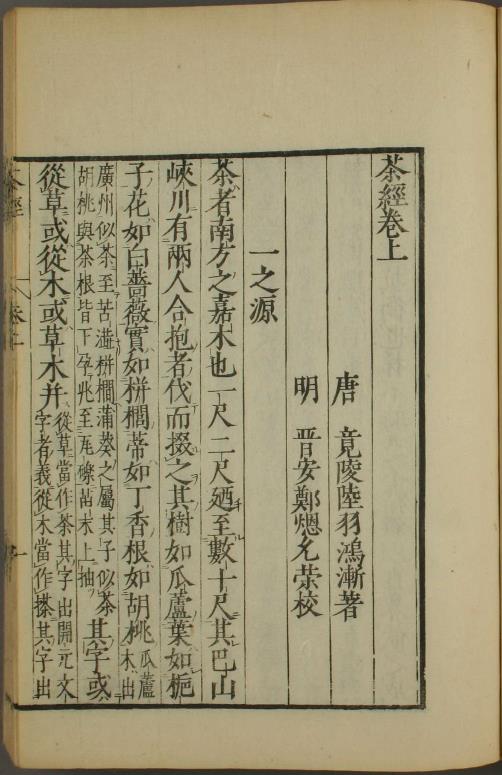 茶經卷上
唐　竟陵陸羽鴻漸著
明　晉安鄭熜允榮校
一之源
茶者南方之嘉木也一尺二尺廼至數十尺其巴山
峽川有兩人合抱者伐而掇之其樹如瓜蘆葉如梔
子花如白薔薇實如栟櫚蒂如丁香根如胡桃瓜蘆木出
廣州似茶至苦澁栟櫚蒲葵之屬其子似茶胡桃與茶根皆下孕兆至瓦礫苗木上抽其字或
從草或從木或草木并從草當作茶其字出開元文字者義從木當作搽其字出
茶經